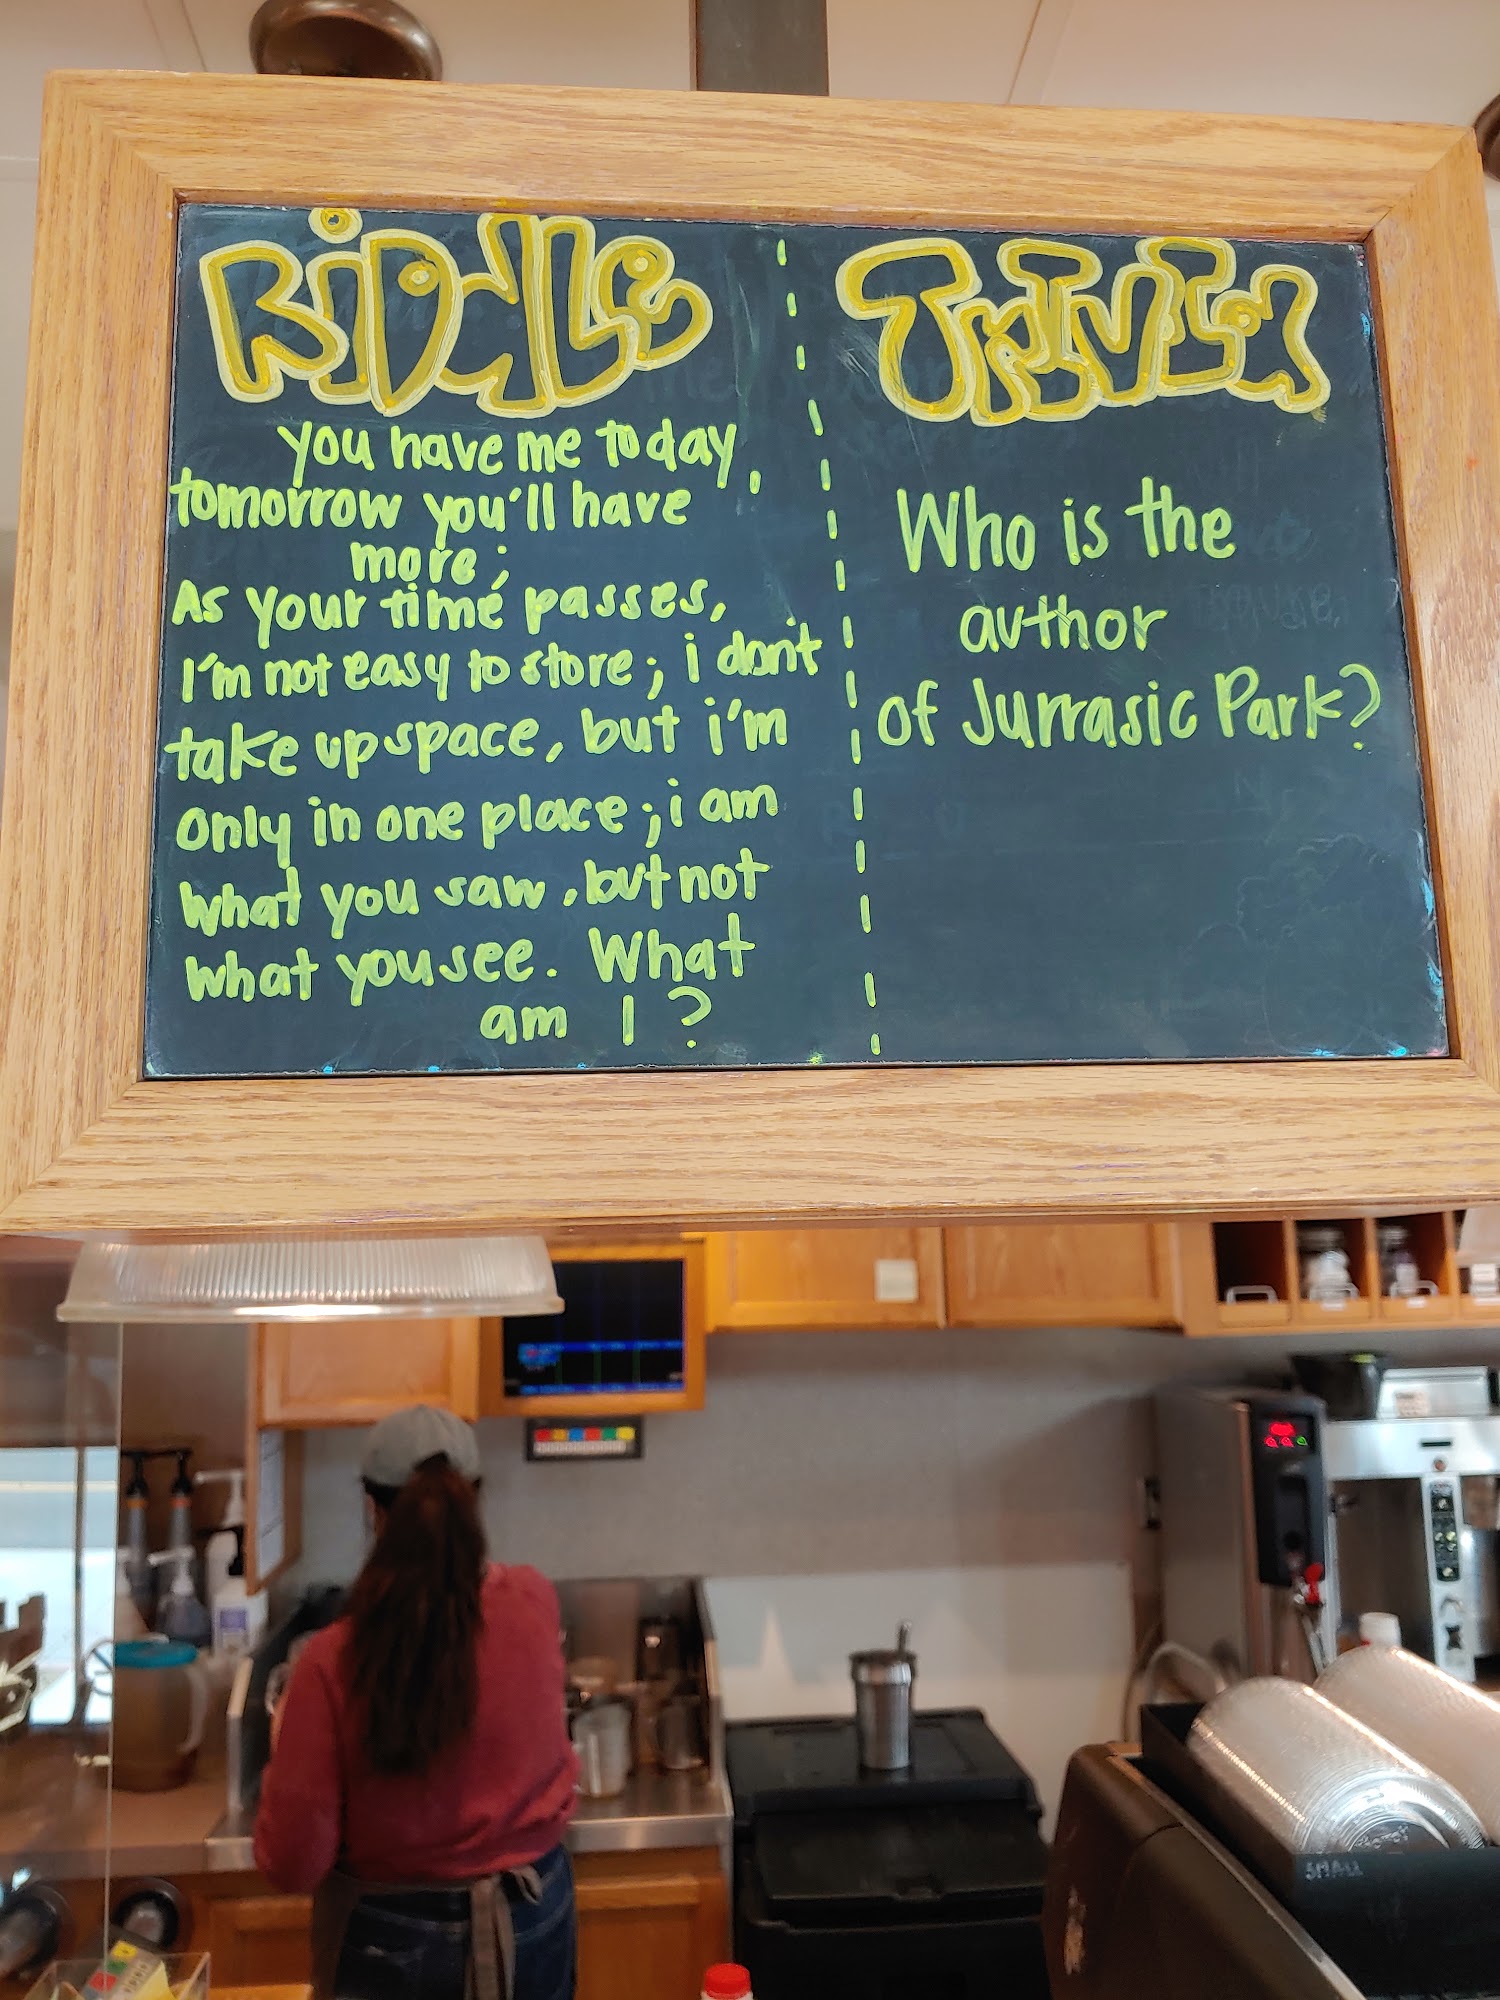 Riddle
you have me today,
tomorrow you'll have
more;
As your time passes,
I'm not easy to store; i don't
take up space, but i'm
only in one place; i am
what you saw, but not
what you see. What
am I?
Trivia
Who is the
author
of Jurrasic Park?
SMALL